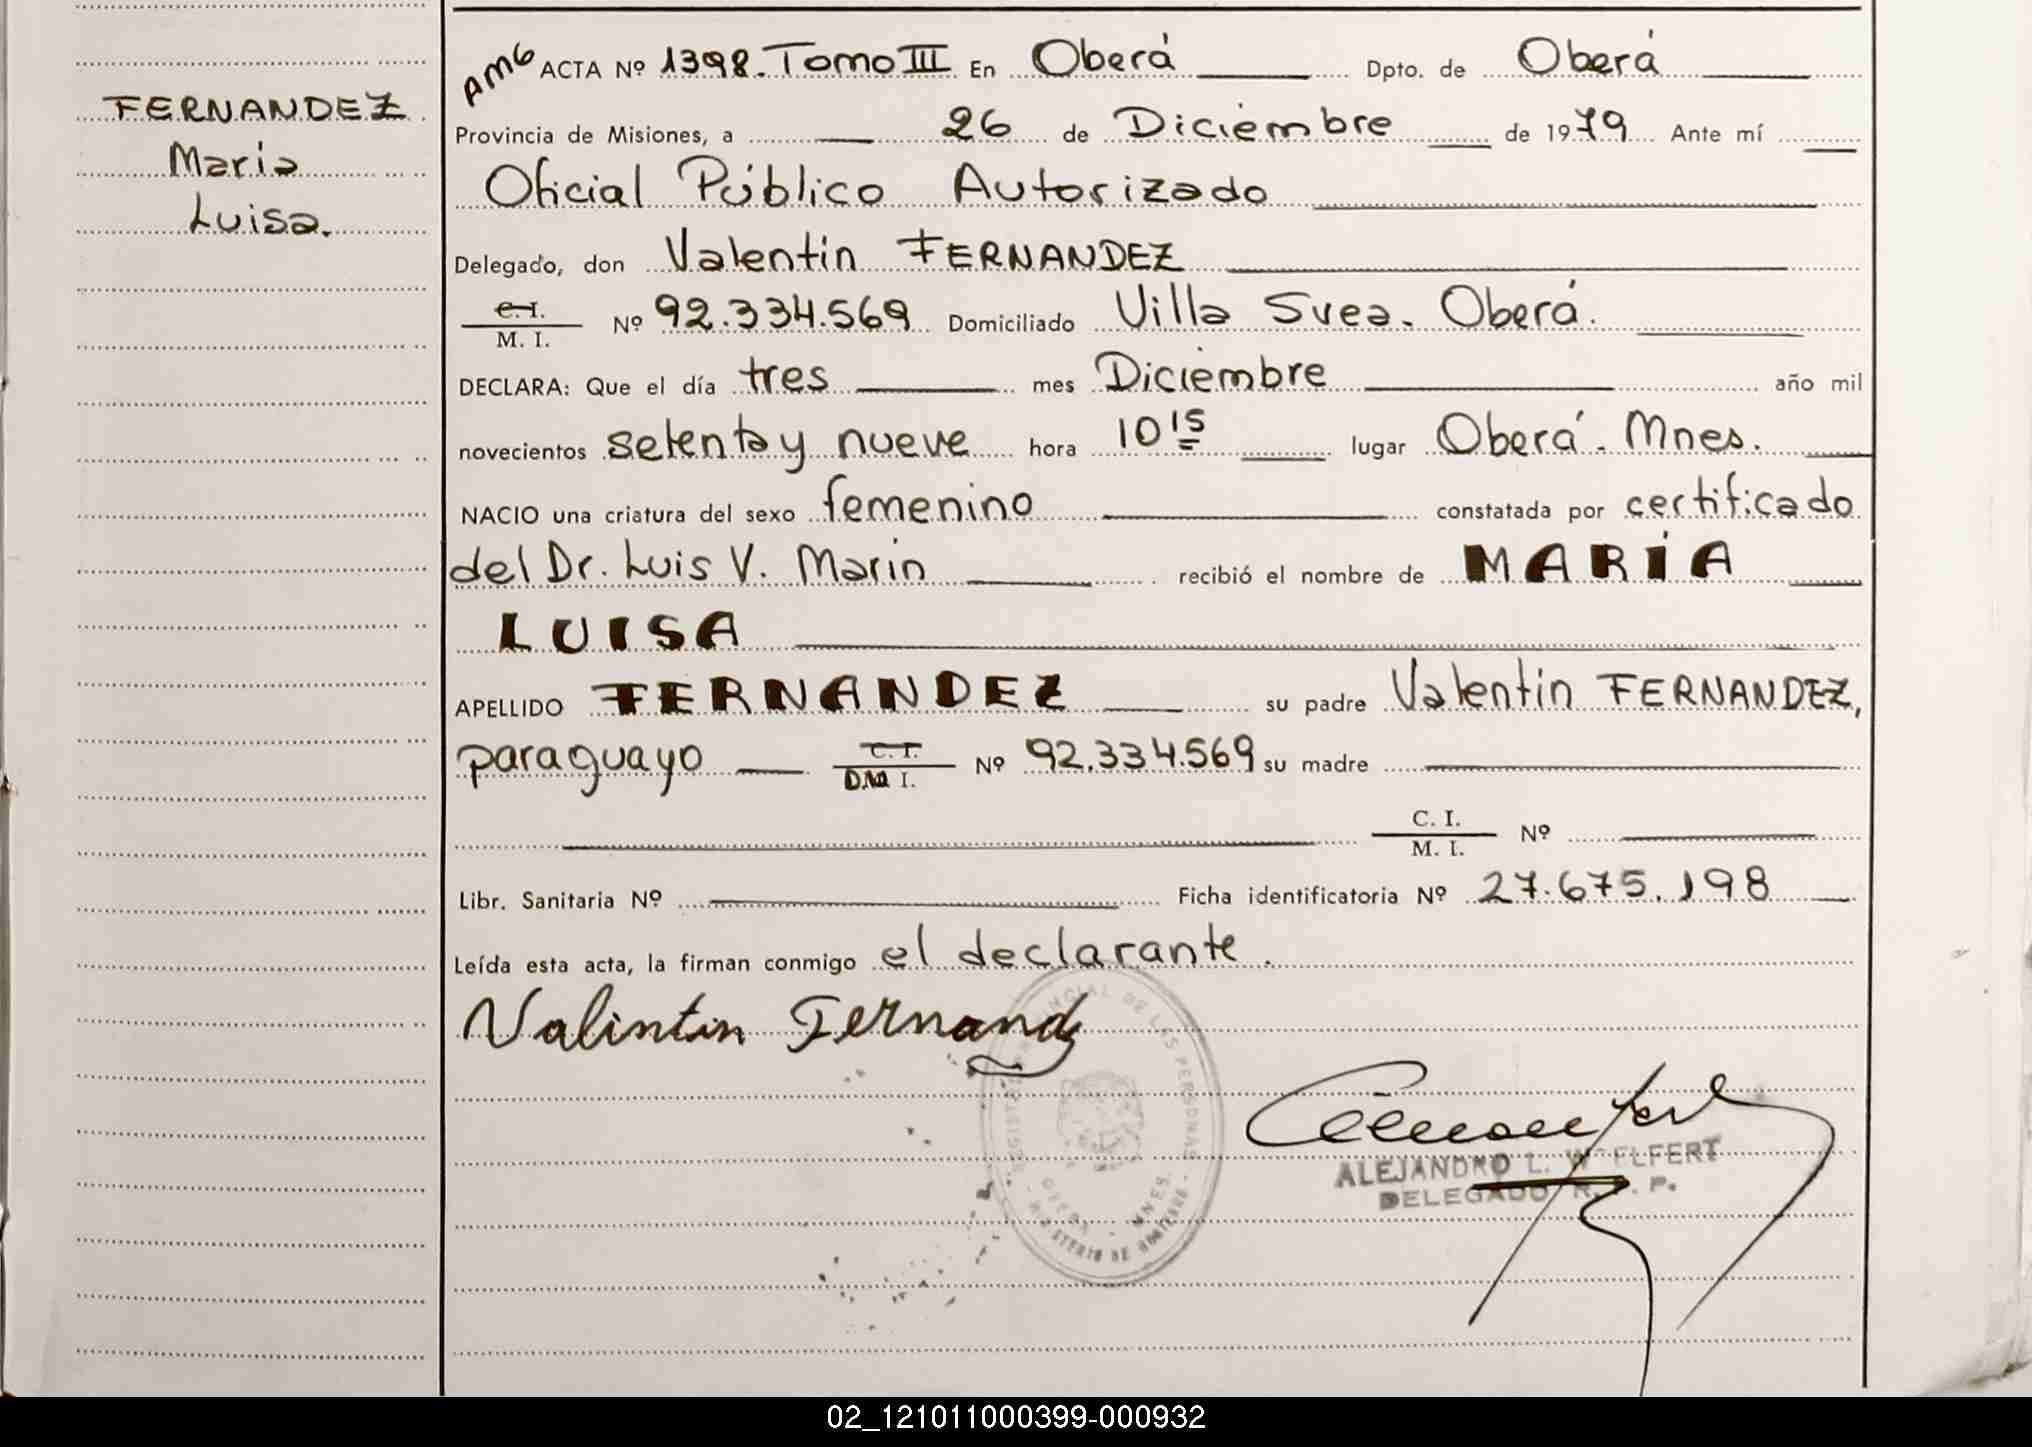 FERNANDEZ
Maria
Luisa.
AMG ACTA Nº 1398. Tomo III En Oberá Dpto. de Oberá
Provincia de Misiones, a 26 de Diciembre de 1979 Ante mí
Oficial Público Autorizado
Delegado, don Valentin FERNANDEZ
C.I.
M. I. Nº 92.334.569 Domiciliado Villa Svea. Oberá.
DECLARA: Que el día tres mes Diciembre año mil
novecientos setenta y nueve hora 10 15 lugar Oberá. Mnes.
NACIO una criatura del sexo femenino constatada por certificado
del Dr. Luis V. Marin recibió el nombre de MARÍA
LUISA
APELLIDO FERNANDEZ su padre Valentin FERNANDEZ,
paraguayo C.I. D.N.I. Nº 92.334.569 su madre
C. I.
M. I. Nº
Libr. Sanitaria Nº Ficha identificatoria Nº 27.675.198
Leída esta acta, la firman conmigo el declarante.
Valintin Fernandz
PROVINCIAL DE LAS PERSONAS
MNES.
MINISTERIO DE GOBIERNO
ALEJANDRO L. WELFERT
DELEGADO R. P. P.
02_121011000399-000932